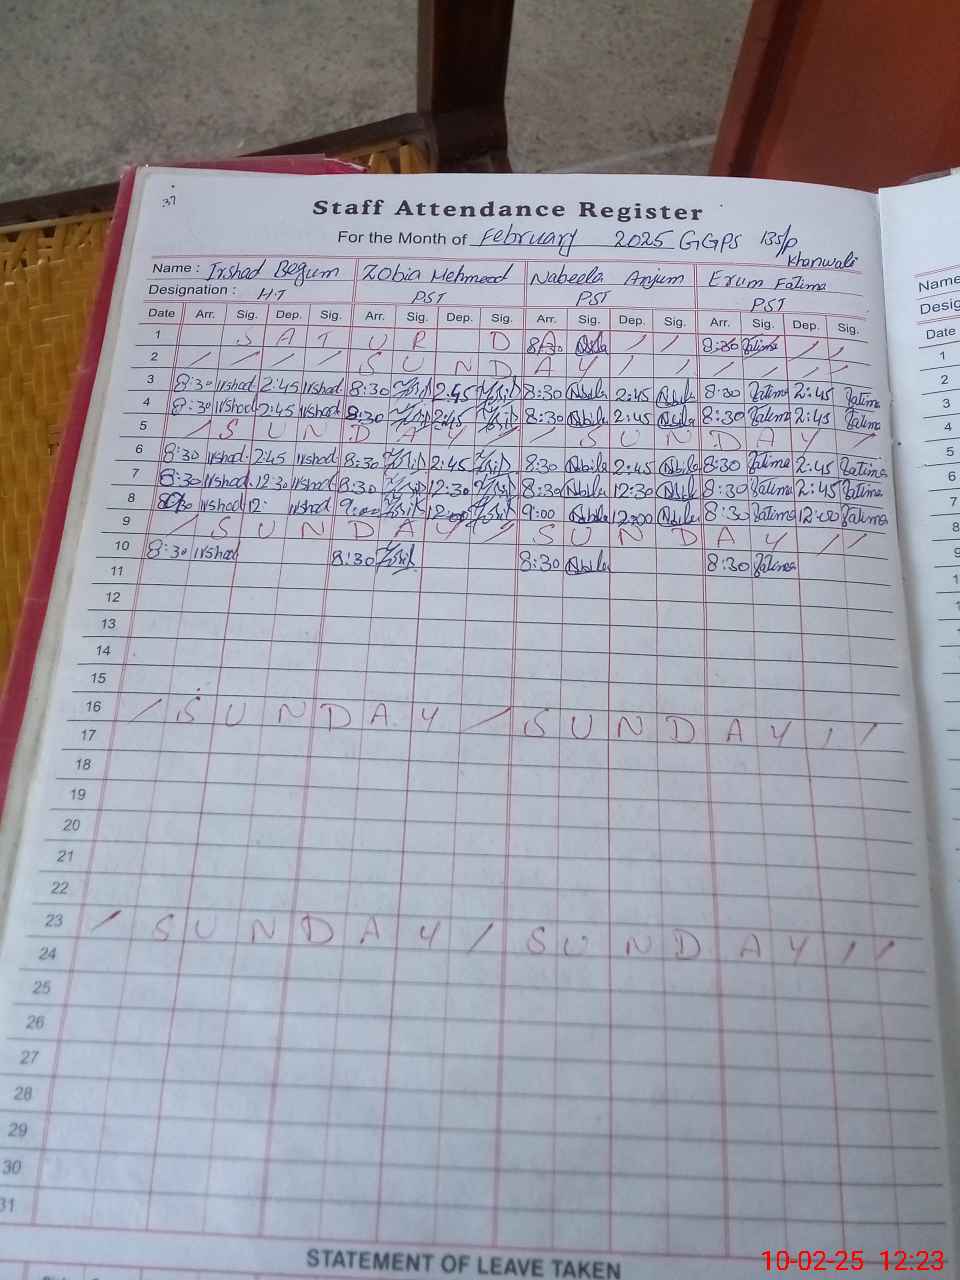 37
Staff Attendance Register
For the Month of February 2025 GGPS 135/P
Khanwali
Name : Irshad Begum Zobia Mehmood Nabeela Anjum Erum Fatima
Designation : H.T PST PST PST
Date Arr. Sig. Dep. Sig. Arr. Sig. Dep. Sig. Arr. Sig. Dep. Sig. Arr. Sig. Dep. Sig.
1 S A T U R D A 8:30 Fatima
2 / / / / S U N D A Y / / / / / /
3 8:30 Irshad 2:45 Irshad 8:30 2:45 8:30 Nabila 2:45 Nabila 8:30 Fatima 2:45 Fatima
4 8:30 Irshad 2:45 Irshad 8:30 2:45 8:30 Nabila 2:45 Nabila 8:30 Fatima 2:45 Fatima
5 / S U N D A Y / / S U N D A Y /
6 8:30 Irshad 2:45 Irshad 8:30 2:45 8:30 Nabila 2:45 Nabila 8:30 Fatima 2:45 Fatima
7 8:30 Irshad 12:30 Irshad 8:30 12:30 8:30 Nabila 12:30 Nabila 8:30 Fatima 2:45 Fatima
8 Irshad 12: Irshad 9:00 12:00 9:00 Nabila 12:00 Nabila 8:30 Fatima 12:00 Fatima
9 / S U N D A Y / S U N D A Y / /
10 8:30 Irshad 8:30 8:30 Nabila 8:30 Fatima
11
12
13
14
15
16 / S U N D A Y / S U N D A Y / /
17
18
19
20
21
22
23 / S U N D A Y / S U N D A Y / /
24
25
26
27
28
29
30
31
STATEMENT OF LEAVE TAKEN
Name
Desig
Date
1
2
3
4
5
6
7
8
9
10-02-25 12:23